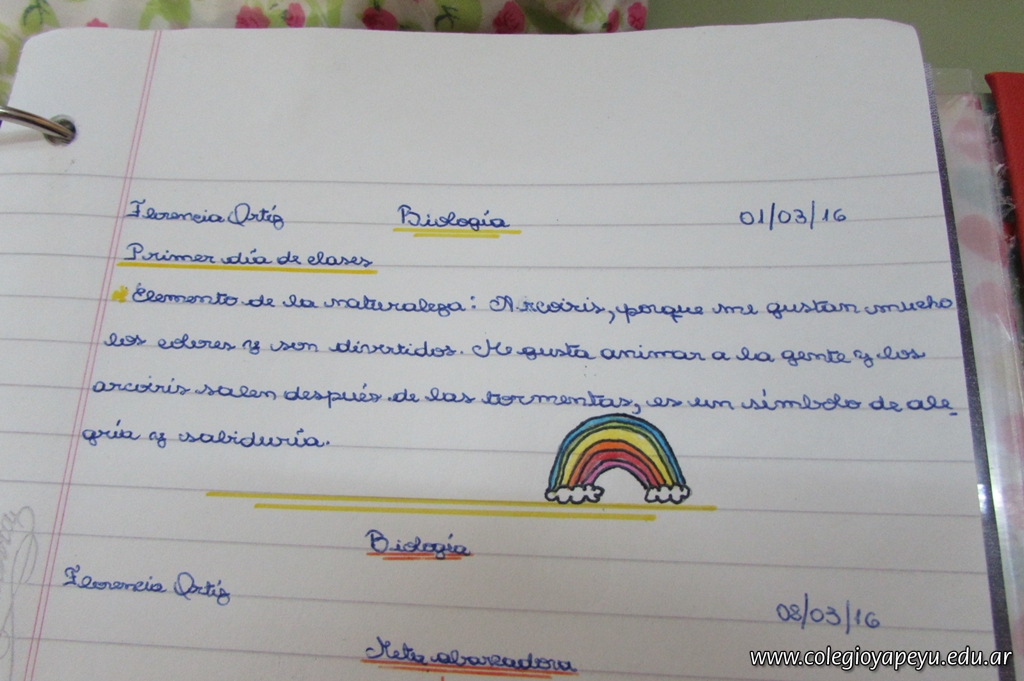 Florencia Ortíz Biología 01/03/16
Primer día de clases
Elemento de la naturaleza: Arcoiris, porque me gustan mucho
los colores y son divertidos. Me gusta animar a la gente y los
arcoiris salen después de las tormentas, es un símbolo de ale-
gría y sabiduría.
Biología
Florencia Ortíz 08/03/16
Meta abarcadora
www.colegioyapeyu.edu.ar